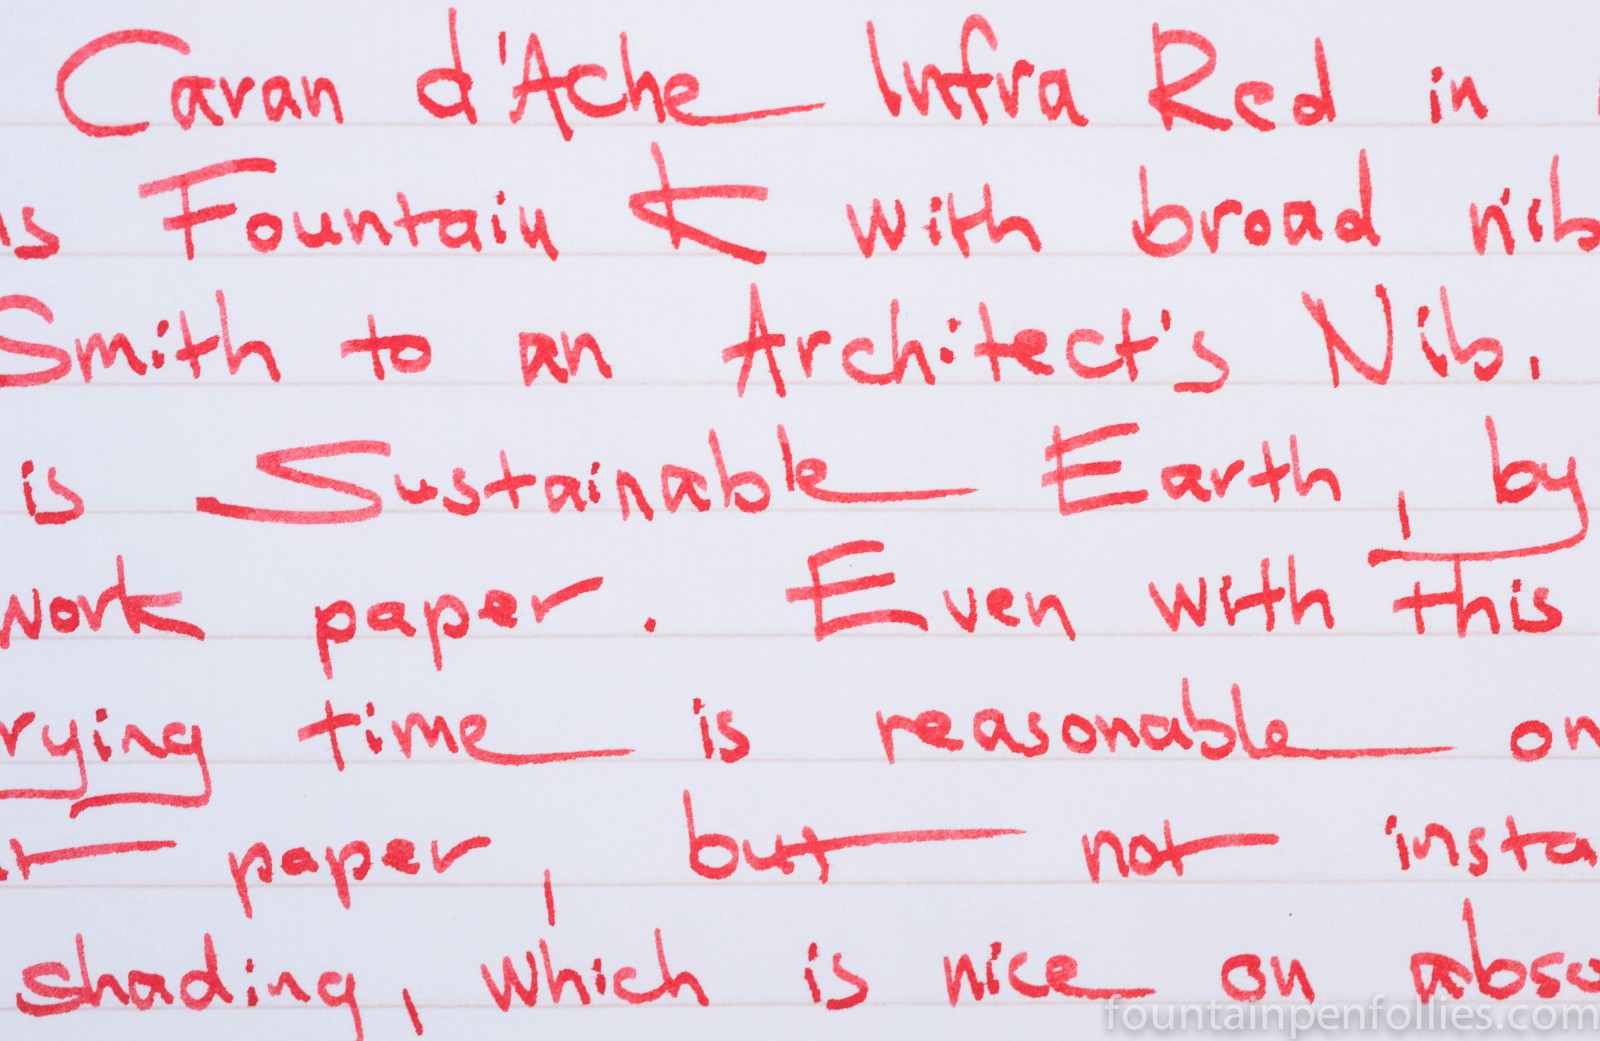 Caran d'Ache Infra Red in
is Fountain K with broad nib
Smith to an Architect's Nib.
is Sustainable Earth, by
work paper. Even with this
rying time is reasonable on
paper, but not insta
shading, which is nice on abso
fountainpenfollies.com